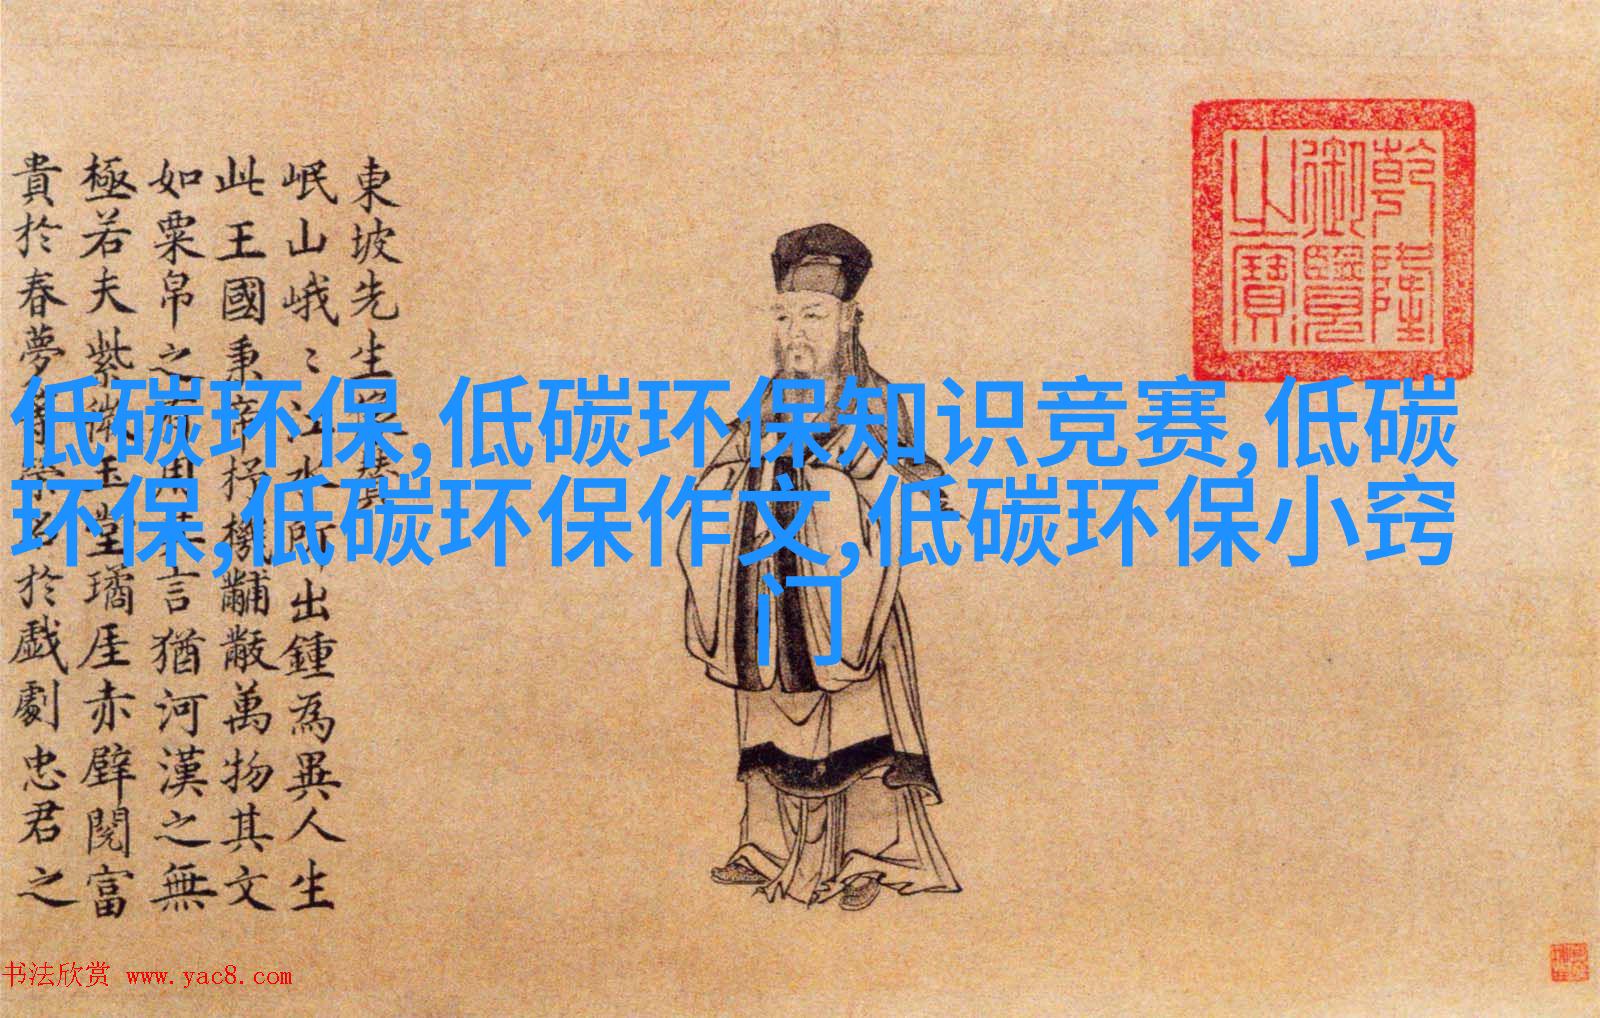 乾隆
御覽
之寶
東坡先生
岷山峨〻江水所出鍾為異人生
此王國秉帝杼機黼黻萬物其文
如粟帛之有用其言猶河漢之無
極若夫紫微玉堂璚厓赤壁閱富
貴於春夢等榮名於戲劇忠君之
低碳环保,低碳环保知识竞赛,低碳
环保,低碳环保作文,低碳环保小窍
门
书法欣赏 www.yac8.com